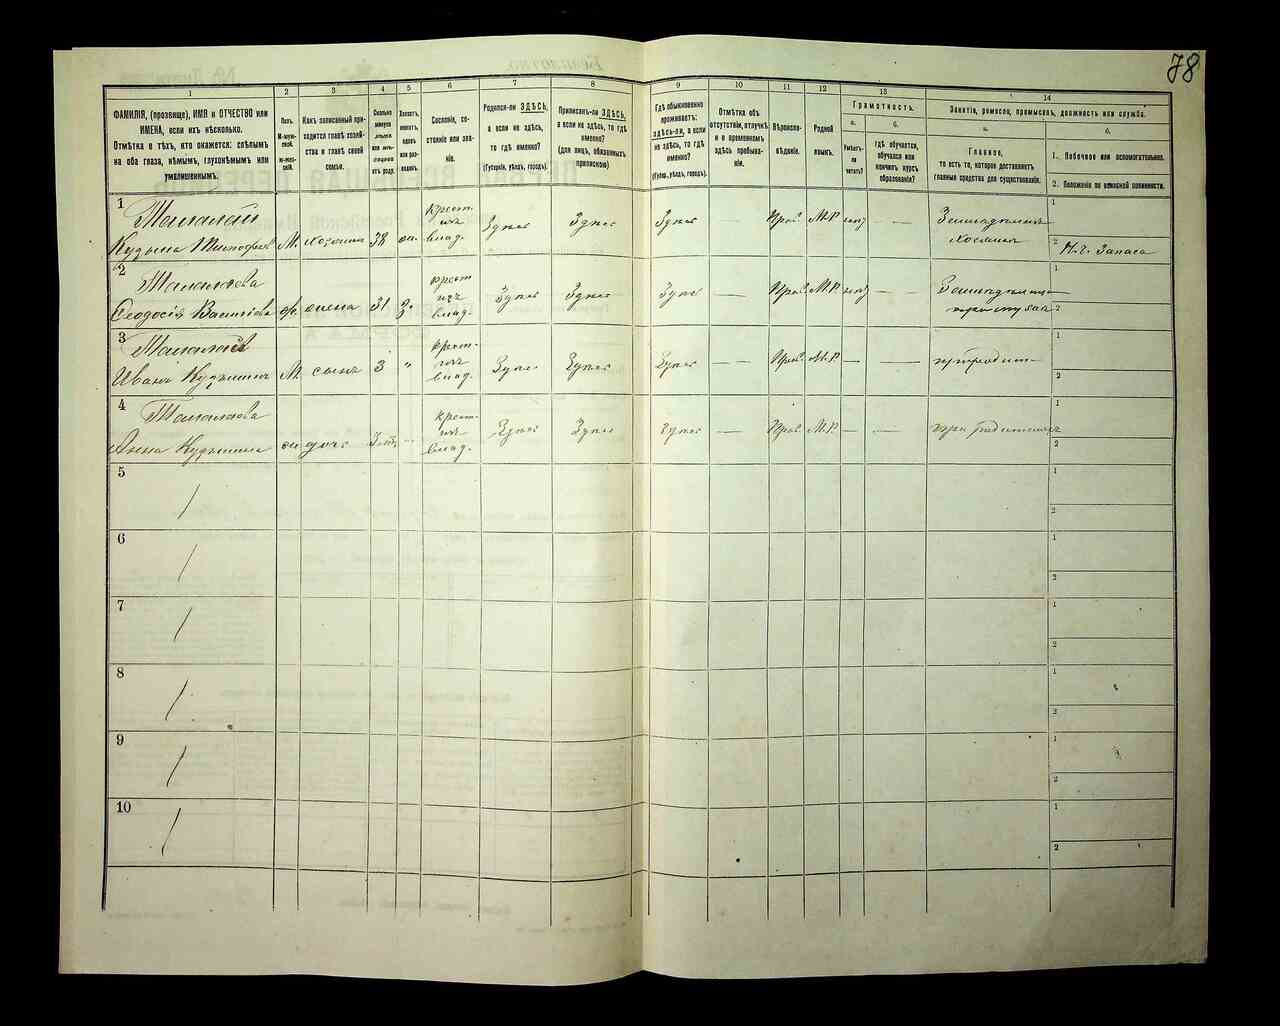 78
1 2 3 4 5 6 7 8 9 10 11 12 13 14
ФАМИЛІЯ, (прозвище), ИМЯ и ОТЧЕСТВО или
ИМЕНА, если ихъ нѣсколько.
Отмѣтка о тѣхъ, кто окажется: слѣпымъ
на оба глаза, нѣмымъ, глухонѣмымъ или
умалишеннымъ.
Полъ.
М-муж-
ской.
Ж-жен-
скій.
Какъ записанный при-
ходится главѣ хозяй-
ства и главѣ своей
семьи.
Сколько
минуло
лѣтъ
или мѣ-
сяцевъ
отъ роду.
Холостъ,
женатъ,
вдовъ
или раз-
веденъ.
Сословіе, со-
стояніе или зва-
ніе.
Родился-ли ЗДѢСЬ,
а если не здѣсь,
то гдѣ именно?
(Губернія, уѣздъ, городъ).
Приписанъ-ли ЗДѢСЬ,
а если не здѣсь, то гдѣ
именно?
(для лицъ, обязанныхъ
припискою)
Гдѣ обыкновенно
проживаетъ:
здѣсь-ли, а если
не здѣсь, то гдѣ
именно?
(Губер., уѣздъ, городъ).
Отмѣтка объ
отсутствіи, отлучкѣ
и о временномъ
здѣсь пребыва-
ніи.
Вѣроиспо-
вѣданіе.
Родной
языкъ.
Грамотность.
а.
Умѣетъ-
ли
читать?
б.
Гдѣ обучается,
обучался или
кончилъ курсъ
образованія?
Занятіе, ремесло, промыселъ, должность или служба.
а.
Главное,
то есть то, которое доставляетъ
главныя средства для существованія.
б.
1. Побочное или вспомогательное.
2. Положеніе по воинской повинности.
1
Кузьма
М.
хозяинъ
38
крест
изъ
влад.
Здѣсь Здѣсь Здѣсь —
Прав. М.Р. нѣт — —
хозяинъ
1
2
Запаса
2
Ѳеодосія
жена 31 з.
крест
изъ
влад.
Здѣсь Здѣсь Здѣсь —
Прав. М.Р. нѣт —
1
2
3
Иванъ Кузьминъ М. сынъ 3 "
крест-
изъ
влад.
Здѣсь Здѣсь Здѣсь —
Прав. М.Р. — —
1
2
4
Анна Кузьмина
дочь
крест-
изъ
влад.
Здѣсь Здѣсь Здѣсь —
Прав. М.Р. — —
при родителяхъ
1
2
5
1
2
6
1
2
7
1
2
8
1
2
9
1
2
10
1
2